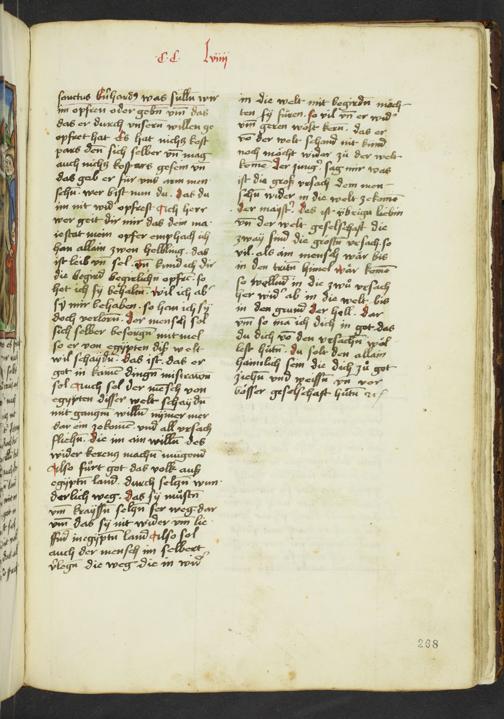 CC Lviiii
sanctus bnhardꝰ was sulln wir
im opfren oder gebn vm das
das er durch vnsern willen ge
opfret hat Es hat nichtz kost
pars den sich selber vn mag
auch nichtz kospers gesein vn
das gab er für vns arm men
schn. wer bist nun du. das du
im nit wid opfrest Ich herr
wer geit dir mir das dem ma
iestat mein opfer emphach ich
han allain zwen helbling. das
ist leib vn sel
die begird begerlichn opfer. so
hot ich sÿ behaltn. wil ich ab
sÿ mir behaben. so han ich sÿ
doch verlorn. Der mensch sol
sich selber besorgn mit
so er von egypten dz welt
wil schaidn. das ist. das er
got in kaine dingn
sol Auch sol der mesch von
egypten diser welt schaydn
mit ganczn willn nymer mer
dar ein zekomen vnd all vrsach
fliehn. die im ein willn des
wider kerens machn mugend
Also fürt got das volk auß
egyptn land. durch selczn wun
derlich weg. das sÿ mustn
vm krayssn selczn ser weg dar
vm das sÿ nit wider vm lie
ffnd in egyptn land Also sol
auch der mensch im selbert
die weg die in wid
in die welt mit begirdn moch
ten sÿ füren. so vil vn er wid
vm geren wolt kern. das er
vo der welt schaid nit kund
noch mocht wider zu der welt
kome Der jung. sag mir was
ist die groß vrsach dem men
schn wider in die welt zekome
der mayst. das ist vbrigu liebin
vn der welt geselschaft. die
zway sind die grostn vrsach. so
vil. als ein mensch wär bis
in den tritn himel wär kome
so welnd in die zwü vrsach
her wid ab in die welt. bis
in den grund der hell. dar
vm so ma ich dich in got. das
du dich vo den vrsachn wol
lest hütn. du solt den allain
haimlich sein die dich zů got
ziehn vnd weissn vn vor
bösser geselschaft hütn
268